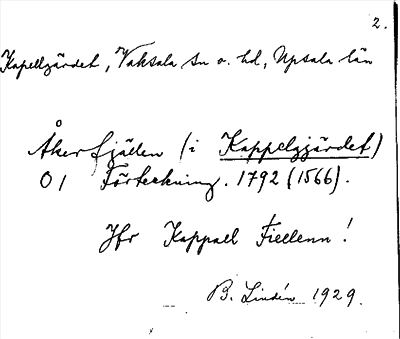 2.
Kapellgärdet, Vaksala sn o. hd, Upsala län
Åkerfjällen (i Kappelgjärdet)
O1 Förteckning. 1792 (1566).
Jfr Kappall Fiellenn!
B. Lindén 1929.